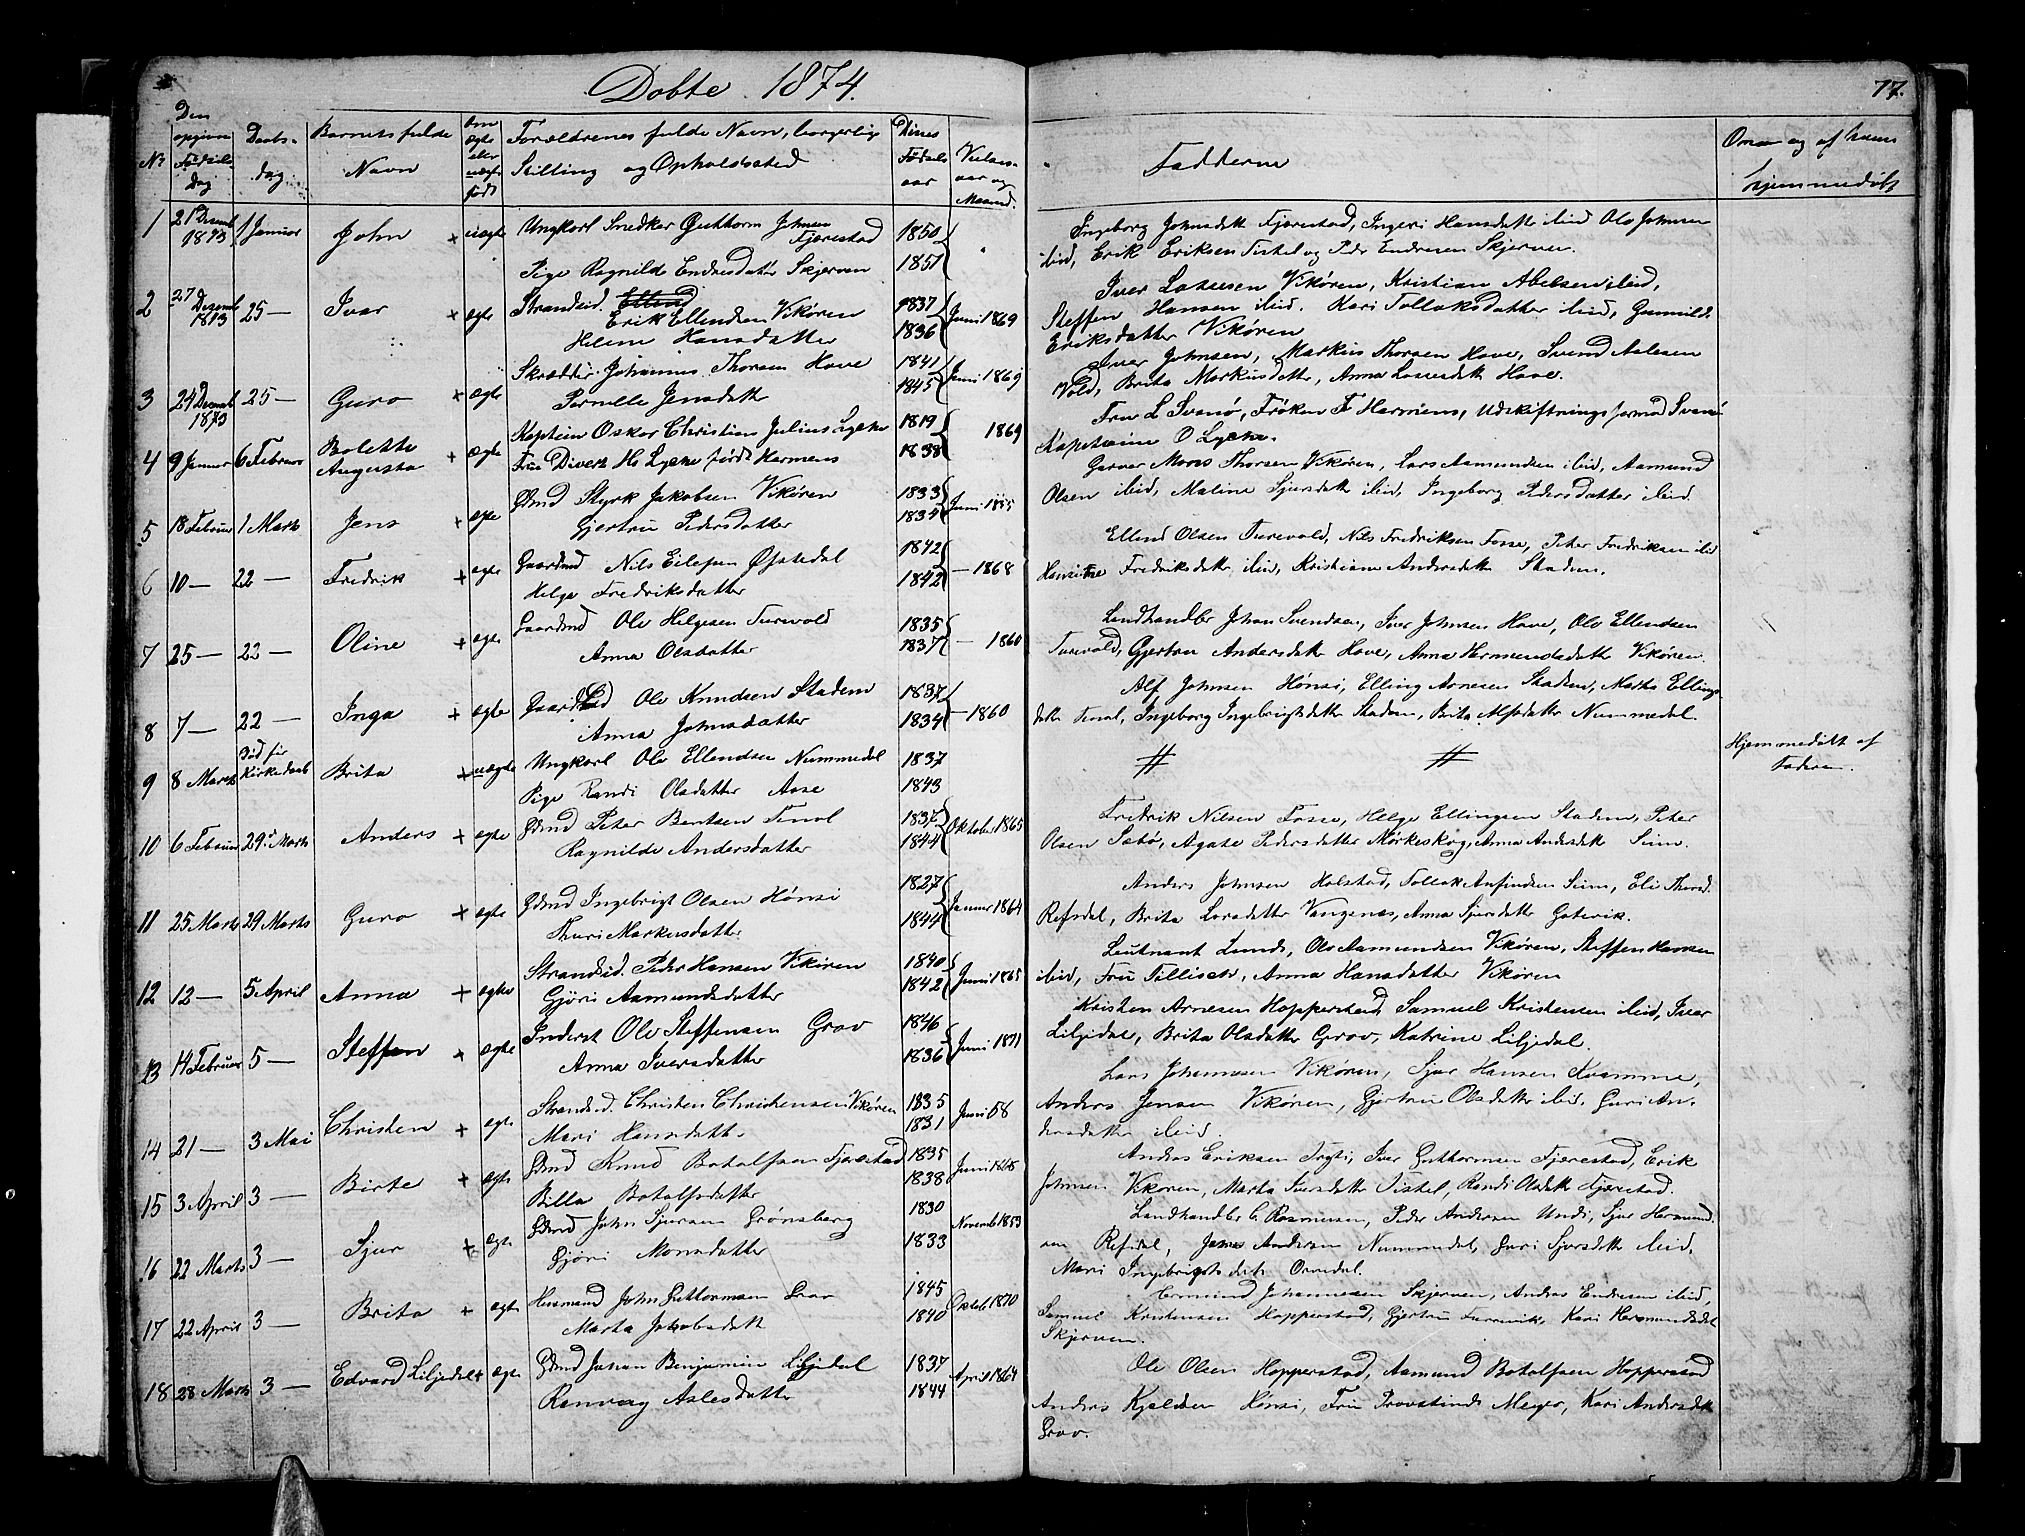 Døbte 1874.
77.
No
Den opgivne Fødsels Dag
Daabs-dag
Barnets fulde Navn
Om ægte eller uægte født
Forældrenes fulde Navn, borgerlige Stilling og Opholdssted
Dines Fødsels aar
Vielses-aar og Maaned.
Fadderne
Om og af hvem hjemmedøbt
1 21 Desemb 1873 1 Januar John + uægte Ungkarl Snedker Guttorm Johnsen Fjærestad 1850
Pige Ragnilde Endresdatter Skjerven 1851
Ingeborg Johnsdtt Fjærestad, Ingeri Hansdatter ibid Ole Johnsen
ibid, Erik Eriksen Tistel og Peder Endresen Skjerven.
2 27 Desemb 1873 25 — Ivar + ægte Strandsid. Erik Ellendsen Vikøren 1837 Juni 1869
Helene Hansdatter 1836
Iver Lassesen Vikøren, Kristian Abelsen ibid,
Steffen Hansen ibid. Kari Tollaksdatter ibid, Gunnild
Eriksdatter Vikøren
3 24 Desemb 1873 25 — Guro + ægte Skrædder Johannes Thorsen Hove 1841 Juni 1869
Pernille Jensdatter 1845
Iver Johnsen, Markus Thorsen Hove, Svend Aslesen
Vold, Brita Markusdatter, Anna Lassesdtt Hove.
4 9 Januar 6 Februar Bolette Augusta + ægte Kaptein Oskar Christian Julius Lyche 1819 1869
Fru Divert Ms Lyche født Harmens 1838
Fru L Svanø, Frøken F Harmens, Udskiftningsformd Svanø
Kapteine O Lyche.
5 18 Februar 1 Marts Jens + ægte Gdmd Styrk Jakobsen Vikøren 1833 Juni 1855
Gjertru Pedersdatter 1834
Garver Mons Thorsen Vikøren, Lars Aamundsen ibid, Aamund
Olsen ibid, Maline Sjursdtt ibid, Ingeborg Pedersdatter ibid.
6 10 — 22 — Fredrik + ægte Gaardmd Nils Eilefsen Øfstedal 1842 — 1868
Helga Fredriksdatter 1842
Ellend Olsen Turvold, Nils Fredriksen Fosse, Peter Fredriksen ibid
Henrikke Fredriksdtt ibid, Kristiane Andersdtt Stadem.
7 25 — 22 — Oline + ægte Gaardmd Ole Helgesen Turvold 1835 — 1860
Anna Olsdatter 1837
Landhandler Johan Svendsen, Iver Johnsen Hove, Ole Ellendsen
Turvold, Gjertru Andersdtt Hove, Anna Hermundsdatter Vikøren.
8 7 — 22 — Inga + ægte Gaardmd Ole Knudsen Stadem 1837 — 1860
Anna Johnsdatter 1834
Alf Johnsen Hønsi, Elling Arnesen Stadem, Martha Ellings
dtt Tenol, Ingeborg Ingebrigtsdtt Stadem, Brita Alfsdatter Nummedal.
9 8 Marts død før Kirkedaab Brita + uægte Ungkarl Ole Ellendsen Nummedal 1837
Pige Randi Olsdatter Aase 1843
Hjemmedøbt af
Faderen.
10 6 Februar 29 Marts Anders + ægte Gdmd Peter Bentsen Tenol 1837 Oktober 1865
Ragnilde Andersdatter 1844
Fredrik Nilsen Fosse, Helge Ellingsen Stadem, Peter
Olsen Sæbø, Agate Pedersdatter Mørkeskog, Anna Andersdtt Seim.
11 25 Marts 29 Marts Guro + ægte Gdmd Ingebrigt Olsen Hønsi 1827 Januar 1864
Thuri Markusdatter 1844
Anders Johnsen Holstad, Tollak Anfindsen Seim, Eli Thorsd.
Refsdal, Brita Larsdatter Vangsnes, Anna Sjursdatter Gotevik.
12 12 — 5 April Anna + ægte Strandsid. Peder Hansen Vikøren 1840 Juni 1865
Gjøri Aamundsdatter 1842
Leutnant Lund, Ole Aamundsen Vikøren, Steffen Hansen
ibid, Fru Tillisch, Anna Hansdatter Vikøren
13 14 Februar 5 — Steffen + ægte Inderst Ole Steffensen Grov 1846 Juni 1871
Anna Iversdatter 1836
Kristen Arnesen Hopperstad, Samuel Kristensen ibid, Iver
Liljedal, Brita Olsdatter Grov, Katrine Liljedal.
14 21 — 3 Mai Christen + ægte Strandsd. Christen Christensen Vikøren 1835 Juni 58
Mari Hansdatt. 1831
Lars Johannesen Vikøren, Sjur Hansen Kvamme,
Anders Jensen Vikøren, Gjertru Olsdatter ibid. Guri An-
dersdatter ibid.
15 3 April 3 — Birte + ægte Gdmd Knud Botolfsen Fjærestad 1835 Juni 1868
Billa Botolfsdatter 1838
Anders Eriksen Trygti, Iver Guttormsen Fjærestad, Erik
Johnsen Vikøren, Marta Iversdatter Tistel, Randi Olsdtt Fjærestad.
16 22 Marts 3 — Sjur + ægte Gdmd John Sjursen Grønsberg 1830 Novemb 1853
Gjøri Monsdatter 1833
Landhandler C. Rasmussen, Peder Andersen Undi, Sjur Hermund
sen Refsdal, Jens Andersen Nummedal, Guri Sjursdtt ibid,
Mari Ingebrigtsdatt. Ormdal.
17 22 April 3 — Brita + ægte Husmand John Guttormsen Grov 1845 Oktob 1870
Marta Jakobsdatt 1840
Ermund Johannesen Skjerven, Anders Endresen ibid,
Samuel Kristensen Hopperstad, Gjertru Farrevik, Kari Hermundsdtt
Skjerven.
18 28 Marts 3 — Edvard Liljedal + ægte Gdmd Johan Benjamin Liljedal 1837 April 1864
Ranveig Aslesdatter 1844
Ole Olsen Hopperstad, Aamund Botolfsen Hopperstad
Anders Kjeldsen Hønsi, Fru Provstinde Meyer, Kari Andersdtt
Grov.